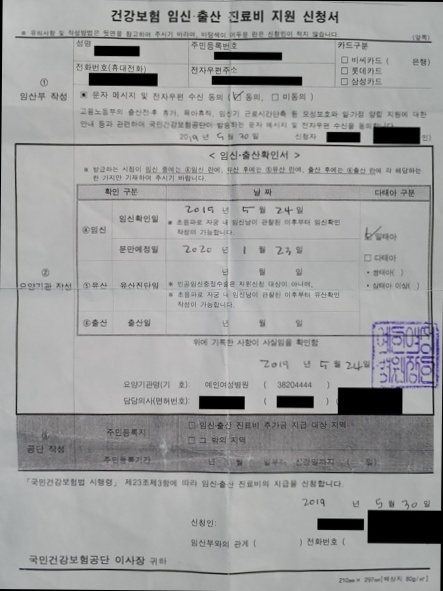 건강보험 임신·출산 진료비 지원 신청서
※ 유의사항 및 작성방법은 뒷면을 참고하여 주시기 바라며, 바탕색이 어두운 란은 신청인이 적지 않습니다. (앞쪽)
성명 주민등록번호 카드구분
□ 비씨카드 ( 은행)
□ 롯데카드
□ 삼성카드
전화번호(휴대전화) 전자우편주소
① 임산부 작성
■ 문자 메시지 및 전자우편 수신 동의 (☑ 동의, □ 미동의)
고용노동부의 출산전후 휴가, 육아휴직, 임신기 근로시간단축 등 모성보호와 일가정 양립 지원에 대한
안내 등과 관련하여 국민건강보험공단이 발송하는 문자 메시지 및 전자우편 수신을 동의합니다.
2019 년 5 월 30 일 신청자
< 임신·출산확인서 >
※ 발급하는 시점이 임신 중에는 ⓐ임신 란에, 유산 후에는 ①유산 란에, 출산 후에는 ⓐ출산 란에 각 해당하는
한 가지만 기재하여 주시기 바랍니다.
확인 구분 날 짜 다태아 구분
ⓐ임신 임신확인일 2019 년 5 월 24 일
※ 초음파로 자궁 내 임신낭이 관찰된 이후부터 임신확인
작성이 가능합니다.
분만예정일 2020 년 1 월 23 일
☑ 일태아
□ 다태아
② 요양기관 작성
①유산 유산진단일 년 월 일
※ 인공임신중절수술은 지원신청 대상이 아니며,
※ 초음파로 자궁 내 임신낭이 관찰된 이후부터 유산확인
작성이 가능합니다.
출산 출산일 년 월 일
위에 기록한 사항이 사실임을 확인함
2019 년 5 월 24 일
요양기관명(기 호): 예인여성병원 ( 38204444 )
담당의사(면허번호): ( )
공단 작성
주민등록지 □ 임신·출산 진료비 추가금 지급 대상 지역
□ 그 밖의 지역
주민등록기간 년 월 일부터
「국민건강보험법 시행령」 제23조제3항에 따라 임신·출산 진료비의 지급을 신청합니다.
2019 년 5 월 30 일
신청인:
임산부와의 관계 ( ) 전화번호 (
국민건강보험공단 이사장 귀하
210㎜ × 297㎜[백상지 80g/㎡]